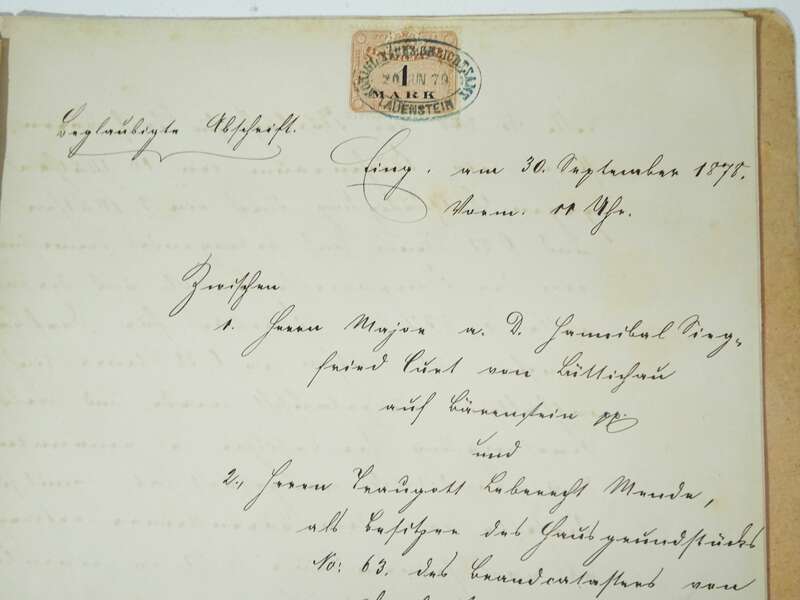 KÖNIGL. SÄCHS. GERICHTSAMT
20 JUN 79
1
MARK
LAUENSTEIN
Beglaubigte Abschrift.
Eing. am 30. September 1878.
Vorm. 11 Uhr.
Zwischen
1. Herrn Major a. D. Hannibal Sieg-
fried Curt von Lüttichau
auf Bärenstein pp.
und
2., Herrn Traugott Leberecht Mende,
als Besitzer des Hausgrundstücks
No: 63. des Brandcatasters von